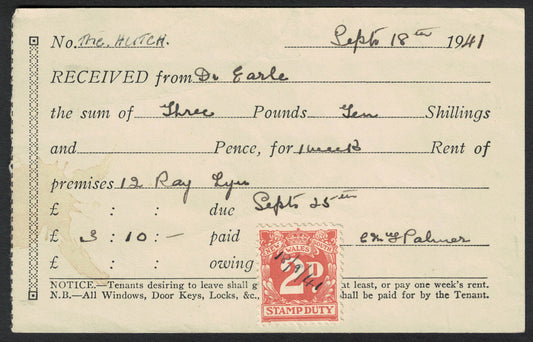 No. The. HUTCH. Septr 18th 1941
RECEIVED from Dr Earle
the sum of Three Pounds Ten Shillings
and Pence, for 1 week Rent of
premises 12 Ray
£ : : due Septr 25th
£ 3 : 10 : - paid Palmer
£ : : owing
NEW SOUTH WALES
2D
18/9/41
STAMP DUTY
NOTICE.—Tenants desiring to leave shall g at least, or pay one week's rent.
N.B.—All Windows, Door Keys, Locks, &c., shall be paid for by the Tenant.